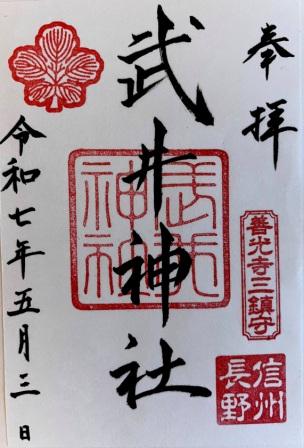 奉拝
善光寺三鎮守
信州
長野
武井神社
武井
神社
令和七年五月三日